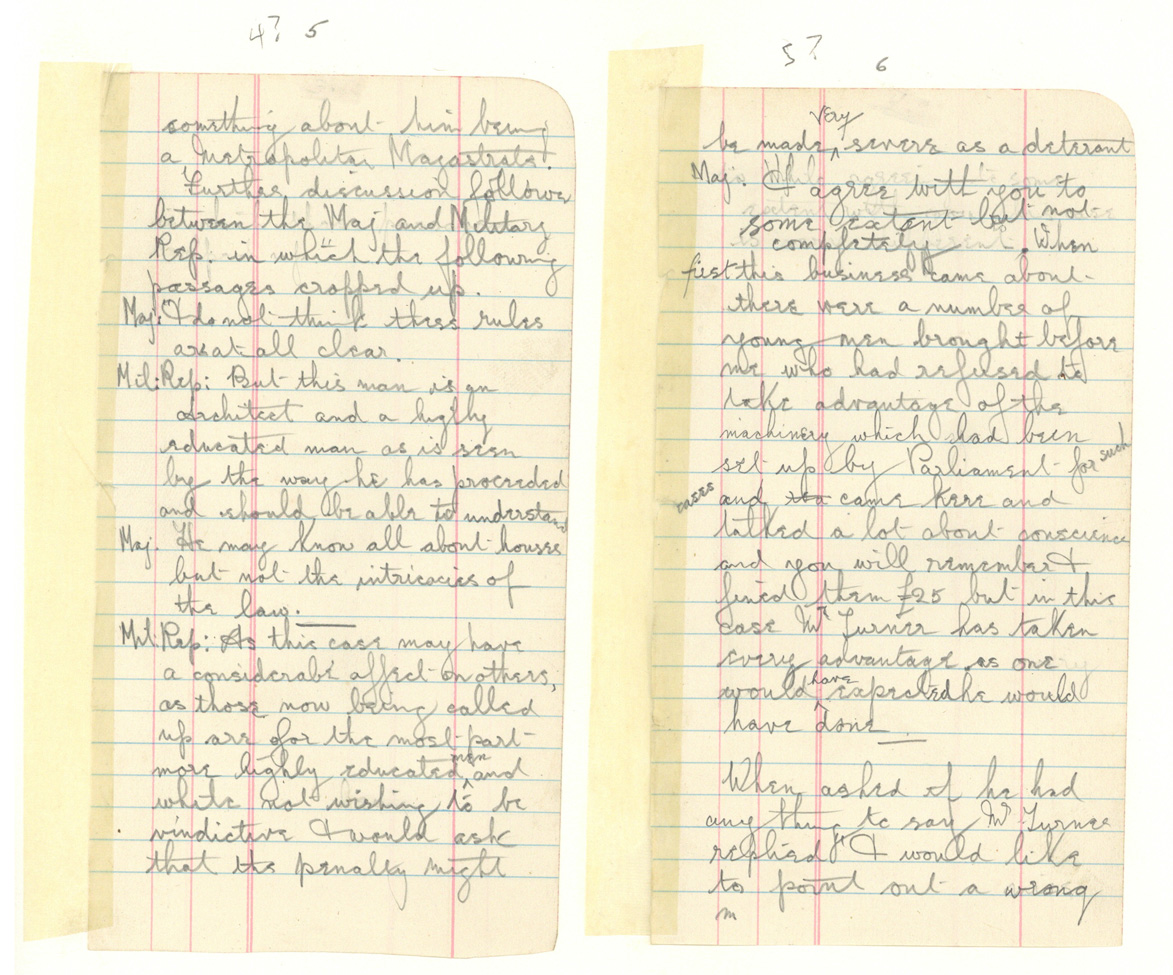 4? 5
something about him being
a Metropolitan Magastrate.
Further discussion followe
between the Maj and Military
Rep: in which the following
passages cropped up.
Maj: I do not think these rules
are at all clear.
Mil: Rep: But this man is an
architect and a highly
educated man as is seen
by the way he has proceeded
and should be able to understand
Maj. He may know all about houses
but not the intricacies of
the law.
Mil: Rep: As this case may have
a considerable affect on others,
as those now being called
up are for the most part
more highly educated men and
while not wishing to be
vindictive I would ask
that the penalty might
5? 6
be made very severe as a deterant
Maj. I agree with you to
some extent but not
completely. When
first this business came about
there were a number of
young men brought before
me who had refused to
take advantage of the
machinery which had been
set up by Parliament for such
cases and came here and
talked a lot about conscience
and you will remember I
fined them £25 but in this
case Mr Turner has taken
every advantage as one
would have expected he would
have done
When asked if he had
any thing to say Mr Turner
replied "I would like
to point out a wrong
m